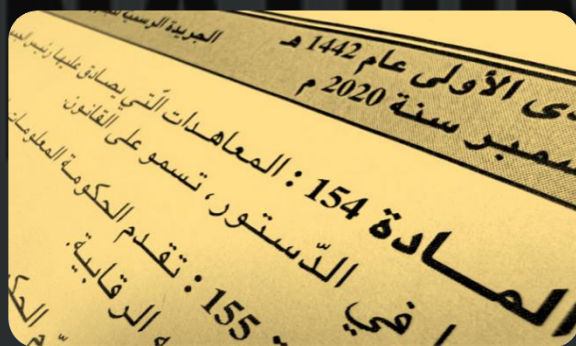 الجريدة الرسمية
ى الأولى عام 1442 هـ
سمبر سنة 2020 م
المــادة 154 : المعاهدات الّتي يصادق عليها رئيس
في الدّستور، تسمو على القانون.
155 : تقدم الحكومة المعلومات
الرقابية.